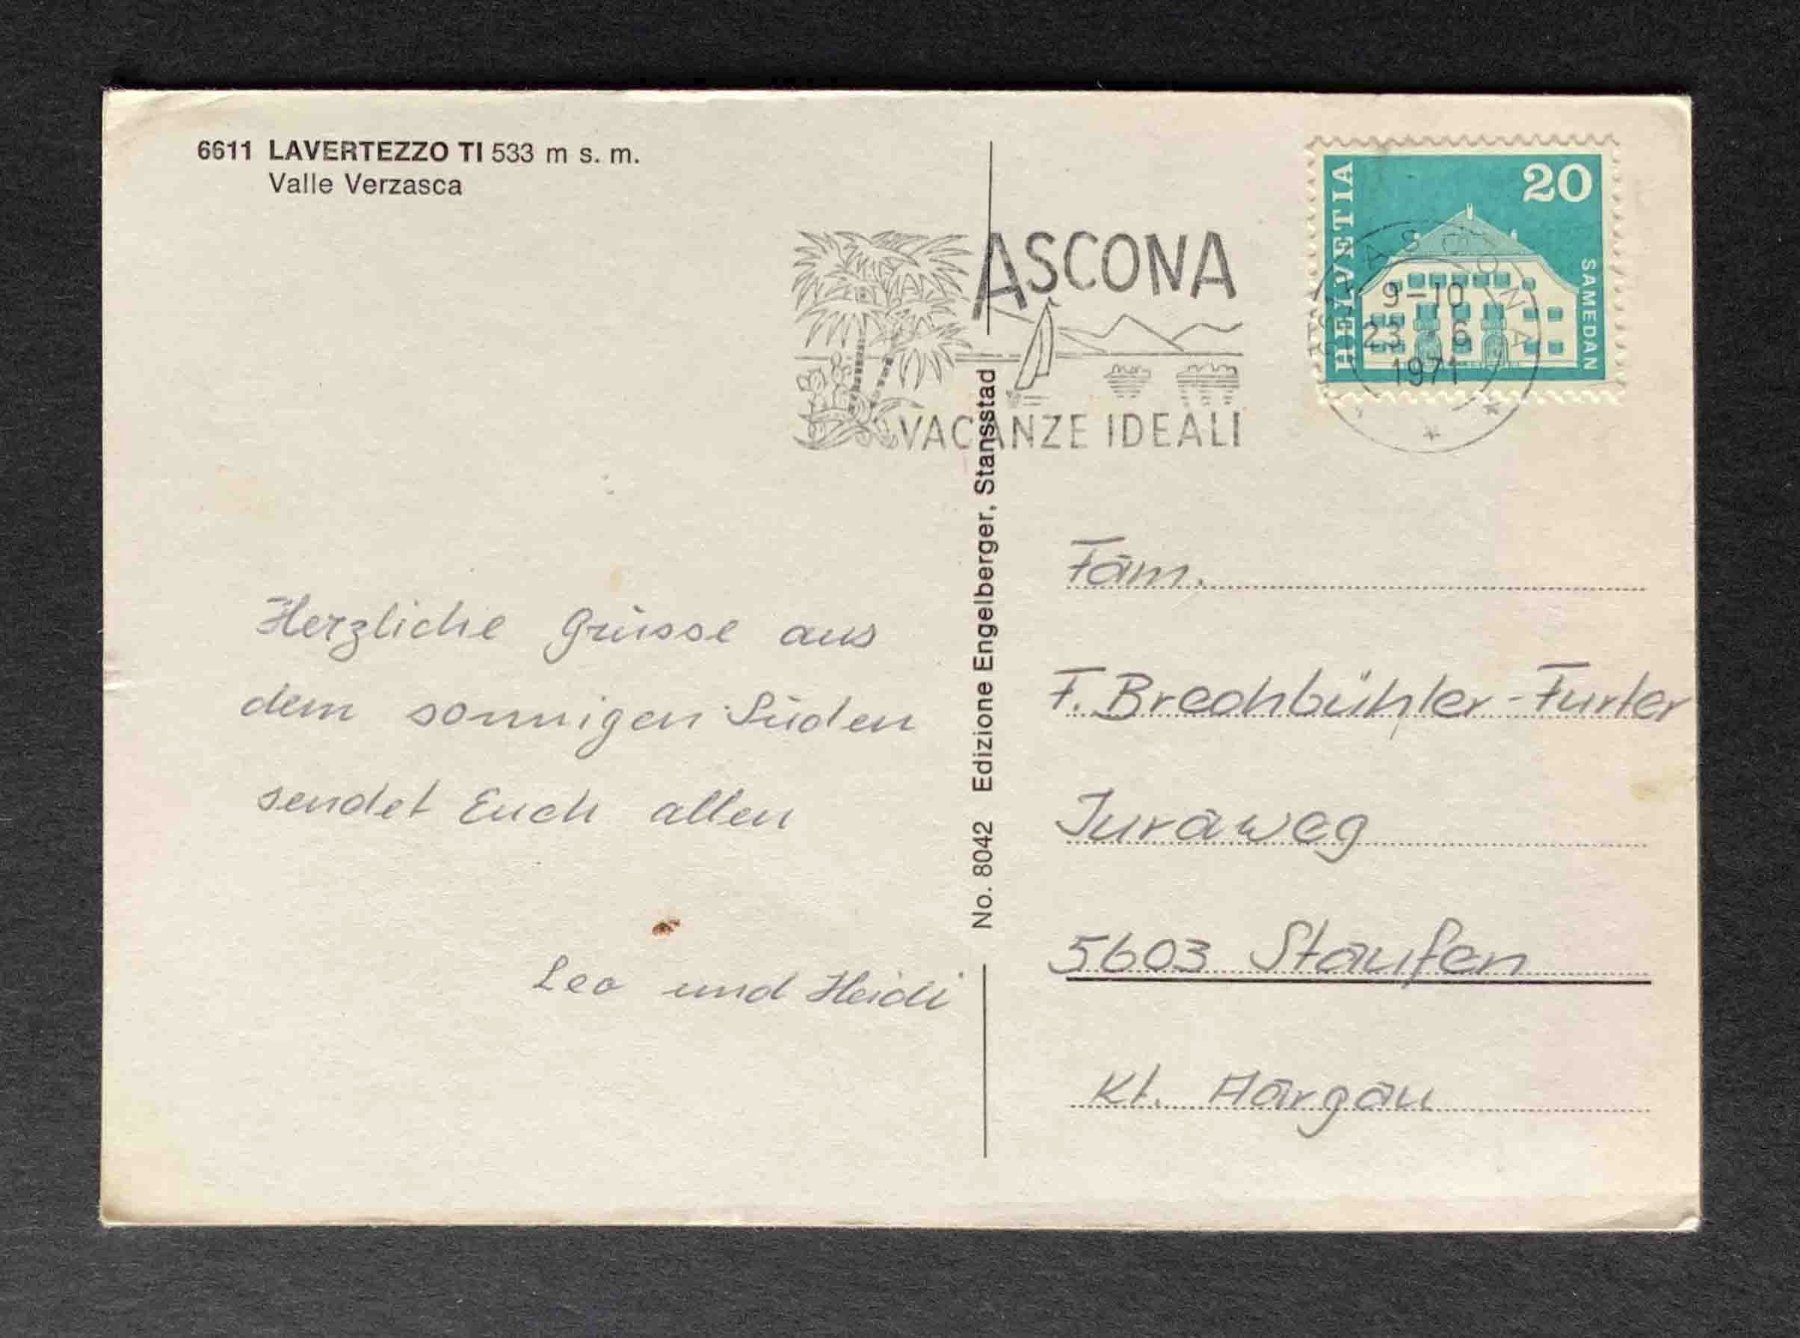 6611 LAVERTEZZO TI 533 m s. m.
Valle Verzasca
Herzliche Grüsse aus
dem sonnigen Süden
sendet Euch allen
Leo und Heidi
No. 8042 Edizione Engelberger, Stansstad
ASCONA
VACANZE IDEALI
HELVETIA
20
SAMEDAN
ASCONA
9-10
23 6
1971
Fam.
F. Brechbühler-Furter
Juraweg
5603 Staufen
Kt. Aargau